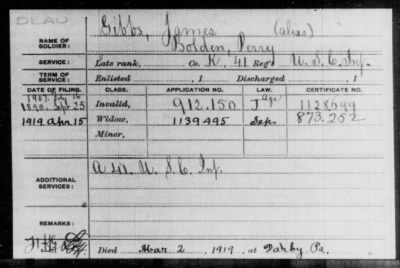 DEAD
NAME OF SOLDIER: Gibbs, James (alias)
Bolden, Perry
SERVICE: Late rank, Co. K, 41 Reg't U.S.C. Inf.
TERM OF SERVICE: Enlisted , 1 Discharged , 1
DATE OF FILING. CLASS. APPLICATION NO. LAW. CERTIFICATE NO.
1907 16 Age
1890, Sept 25 Invalid, 912.150 J 1128699
1919 Apr 15 Widow, 1139495 873.252
Minor,
ADDITIONAL SERVICES: A 41. U.S.C. Inf.
REMARKS:
Died Mar 2, 1919, at Darby Pa.